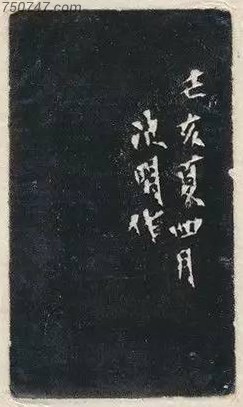 750747.com
己亥夏四月
池明作